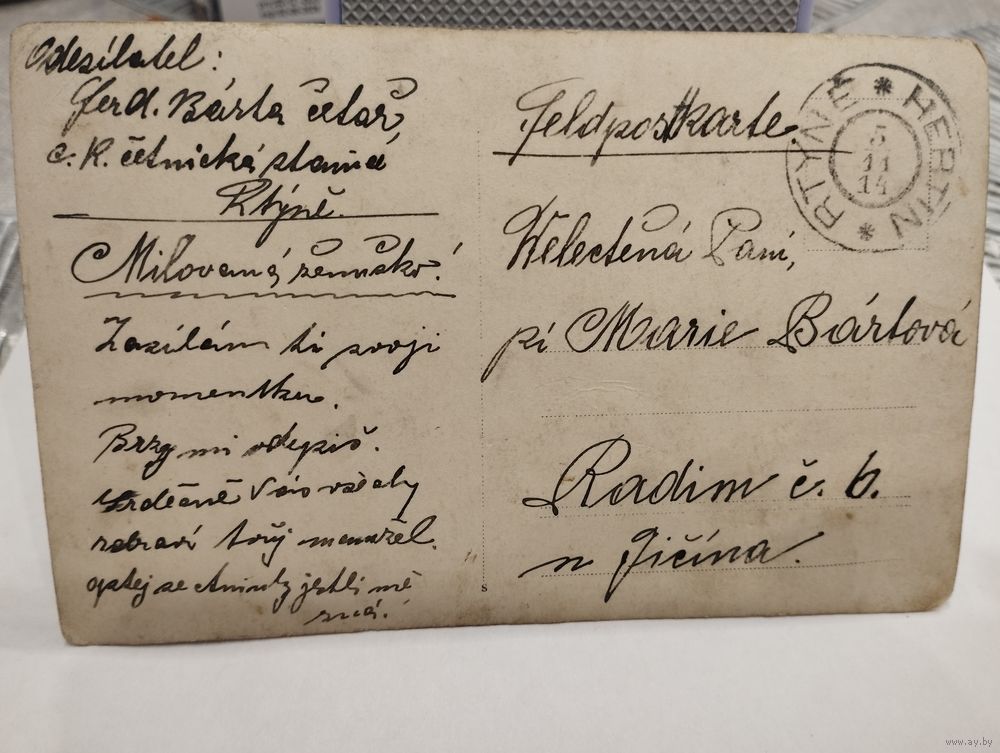 Odesílatel:
Ferd. Bárta četař,
c. k. četnická stanice
Rtýně.
Milovaná ženuško!
Zasílám ti svoji
momentku.
Brzy mi odepiš.
Srdečně Vás všechy
zdraví tvůj manžel.
optej se Aninky jestli mě
zná.
Feldpostkarte.
RTYNĚ * HERTIN *
5
11
14
Welectěná Paní,
pí Marie Bártová
Radim č. 6.
n Jičína.
s
www.ay.by